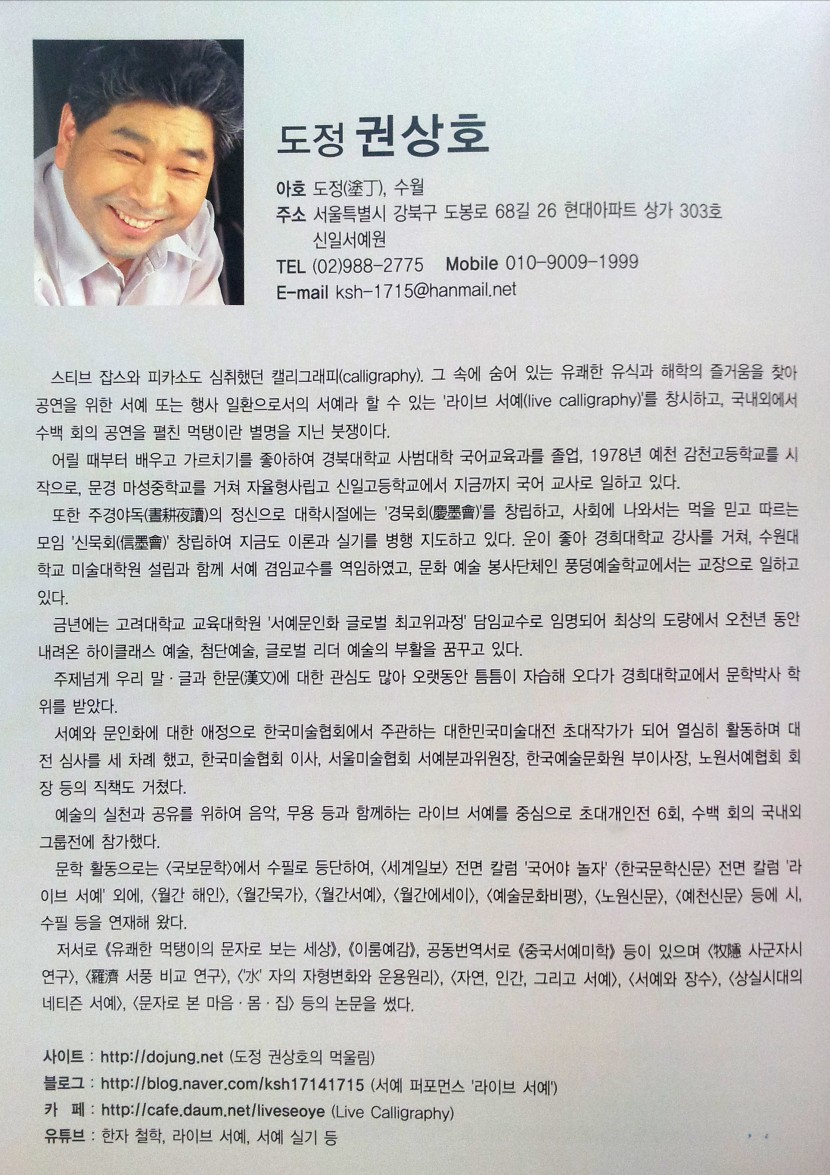 도정 권상호
아호 도정(塗丁), 수월
주소 서울특별시 강북구 도봉로 68길 26 현대아파트 상가 303호
신일서예원
TEL (02)988-2775 Mobile 010-9009-1999
E-mail ksh-1715@hanmail.net
스티브 잡스와 피카소도 심취했던 캘리그래피(calligraphy). 그 속에 숨어 있는 유쾌한 유식과 해학의 즐거움을 찾아
공연을 위한 서예 또는 행사 일환으로서의 서예라 할 수 있는 '라이브 서예(live calligraphy)'를 창시하고, 국내외에서
수백 회의 공연을 펼친 먹탱이란 별명을 지닌 붓쟁이다.
어릴 때부터 배우고 가르치기를 좋아하여 경북대학교 사범대학 국어교육과를 졸업, 1978년 예천 감천고등학교를 시
작으로, 문경 마성중학교를 거쳐 자율형사립고 신일고등학교에서 지금까지 국어 교사로 일하고 있다.
또한 주경야독(晝耕夜讀)의 정신으로 대학시절에는 '경묵회(慶墨會)'를 창립하고, 사회에 나와서는 먹을 믿고 따르는
모임 '신묵회(信墨會)' 창립하여 지금도 이론과 실기를 병행 지도하고 있다. 운이 좋아 경희대학교 강사를 거쳐, 수원대
학교 미술대학원 설립과 함께 서예 겸임교수를 역임하였고, 문화 예술 봉사단체인 풍덩예술학교에서는 교장으로 일하고
있다.
금년에는 고려대학교 교육대학원 '서예문인화 글로벌 최고위과정' 담임교수로 임명되어 최상의 도량에서 오천년 동안
내려온 하이클래스 예술, 첨단예술, 글로벌 리더 예술의 부활을 꿈꾸고 있다.
주제넘게 우리 말·글과 한문(漢文)에 대한 관심도 많아 오랫동안 틈틈이 자습해 오다가 경희대학교에서 문학박사 학
위를 받았다.
서예와 문인화에 대한 애정으로 한국미술협회에서 주관하는 대한민국미술대전 초대작가가 되어 열심히 활동하며 대
전 심사를 세 차례 했고, 한국미술협회 이사, 서울미술협회 서예분과위원장, 한국예술문화원 부이사장, 노원서예협회 회
장 등의 직책도 거쳤다.
예술의 실천과 공유를 위하여 음악, 무용 등과 함께하는 라이브 서예를 중심으로 초대개인전 6회, 수백 회의 국내외
그룹전에 참가했다.
문학 활동으로는 〈국보문학〉에서 수필로 등단하여, 〈세계일보〉 전면 칼럼 '국어야 놀자' 〈한국문학신문〉 전면 칼럼 '라
이브 서예' 외에, 〈월간 해인〉, 〈월간묵가〉, 〈월간서예〉, 〈월간에세이〉, 〈예술문화비평〉, 〈노원신문〉, 〈예천신문〉 등에 시,
수필 등을 연재해 왔다.
저서로 《유쾌한 먹탱이의 문자로 보는 세상》, 《이룸예감》, 공동번역서로 《중국서예미학》 등이 있으며 〈牧隱 사군자시
연구〉, 〈羅濟 서풍 비교 연구〉, 〈'水' 자의 자형변화와 운용원리〉, 〈자연, 인간, 그리고 서예〉, 〈서예와 장수〉, 〈상실시대의
네티즌 서예〉, 〈문자로 본 마음·몸·집〉 등의 논문을 썼다.
사이트 : http://dojung.net (도정 권상호의 먹울림)
블로그 : http://blog.naver.com/ksh17141715 (서예 퍼포먼스 '라이브 서예')
카 페 : http://cafe.daum.net/liveseoye (Live Calligraphy)
유튜브 : 한자 철학, 라이브 서예, 서예 실기 등